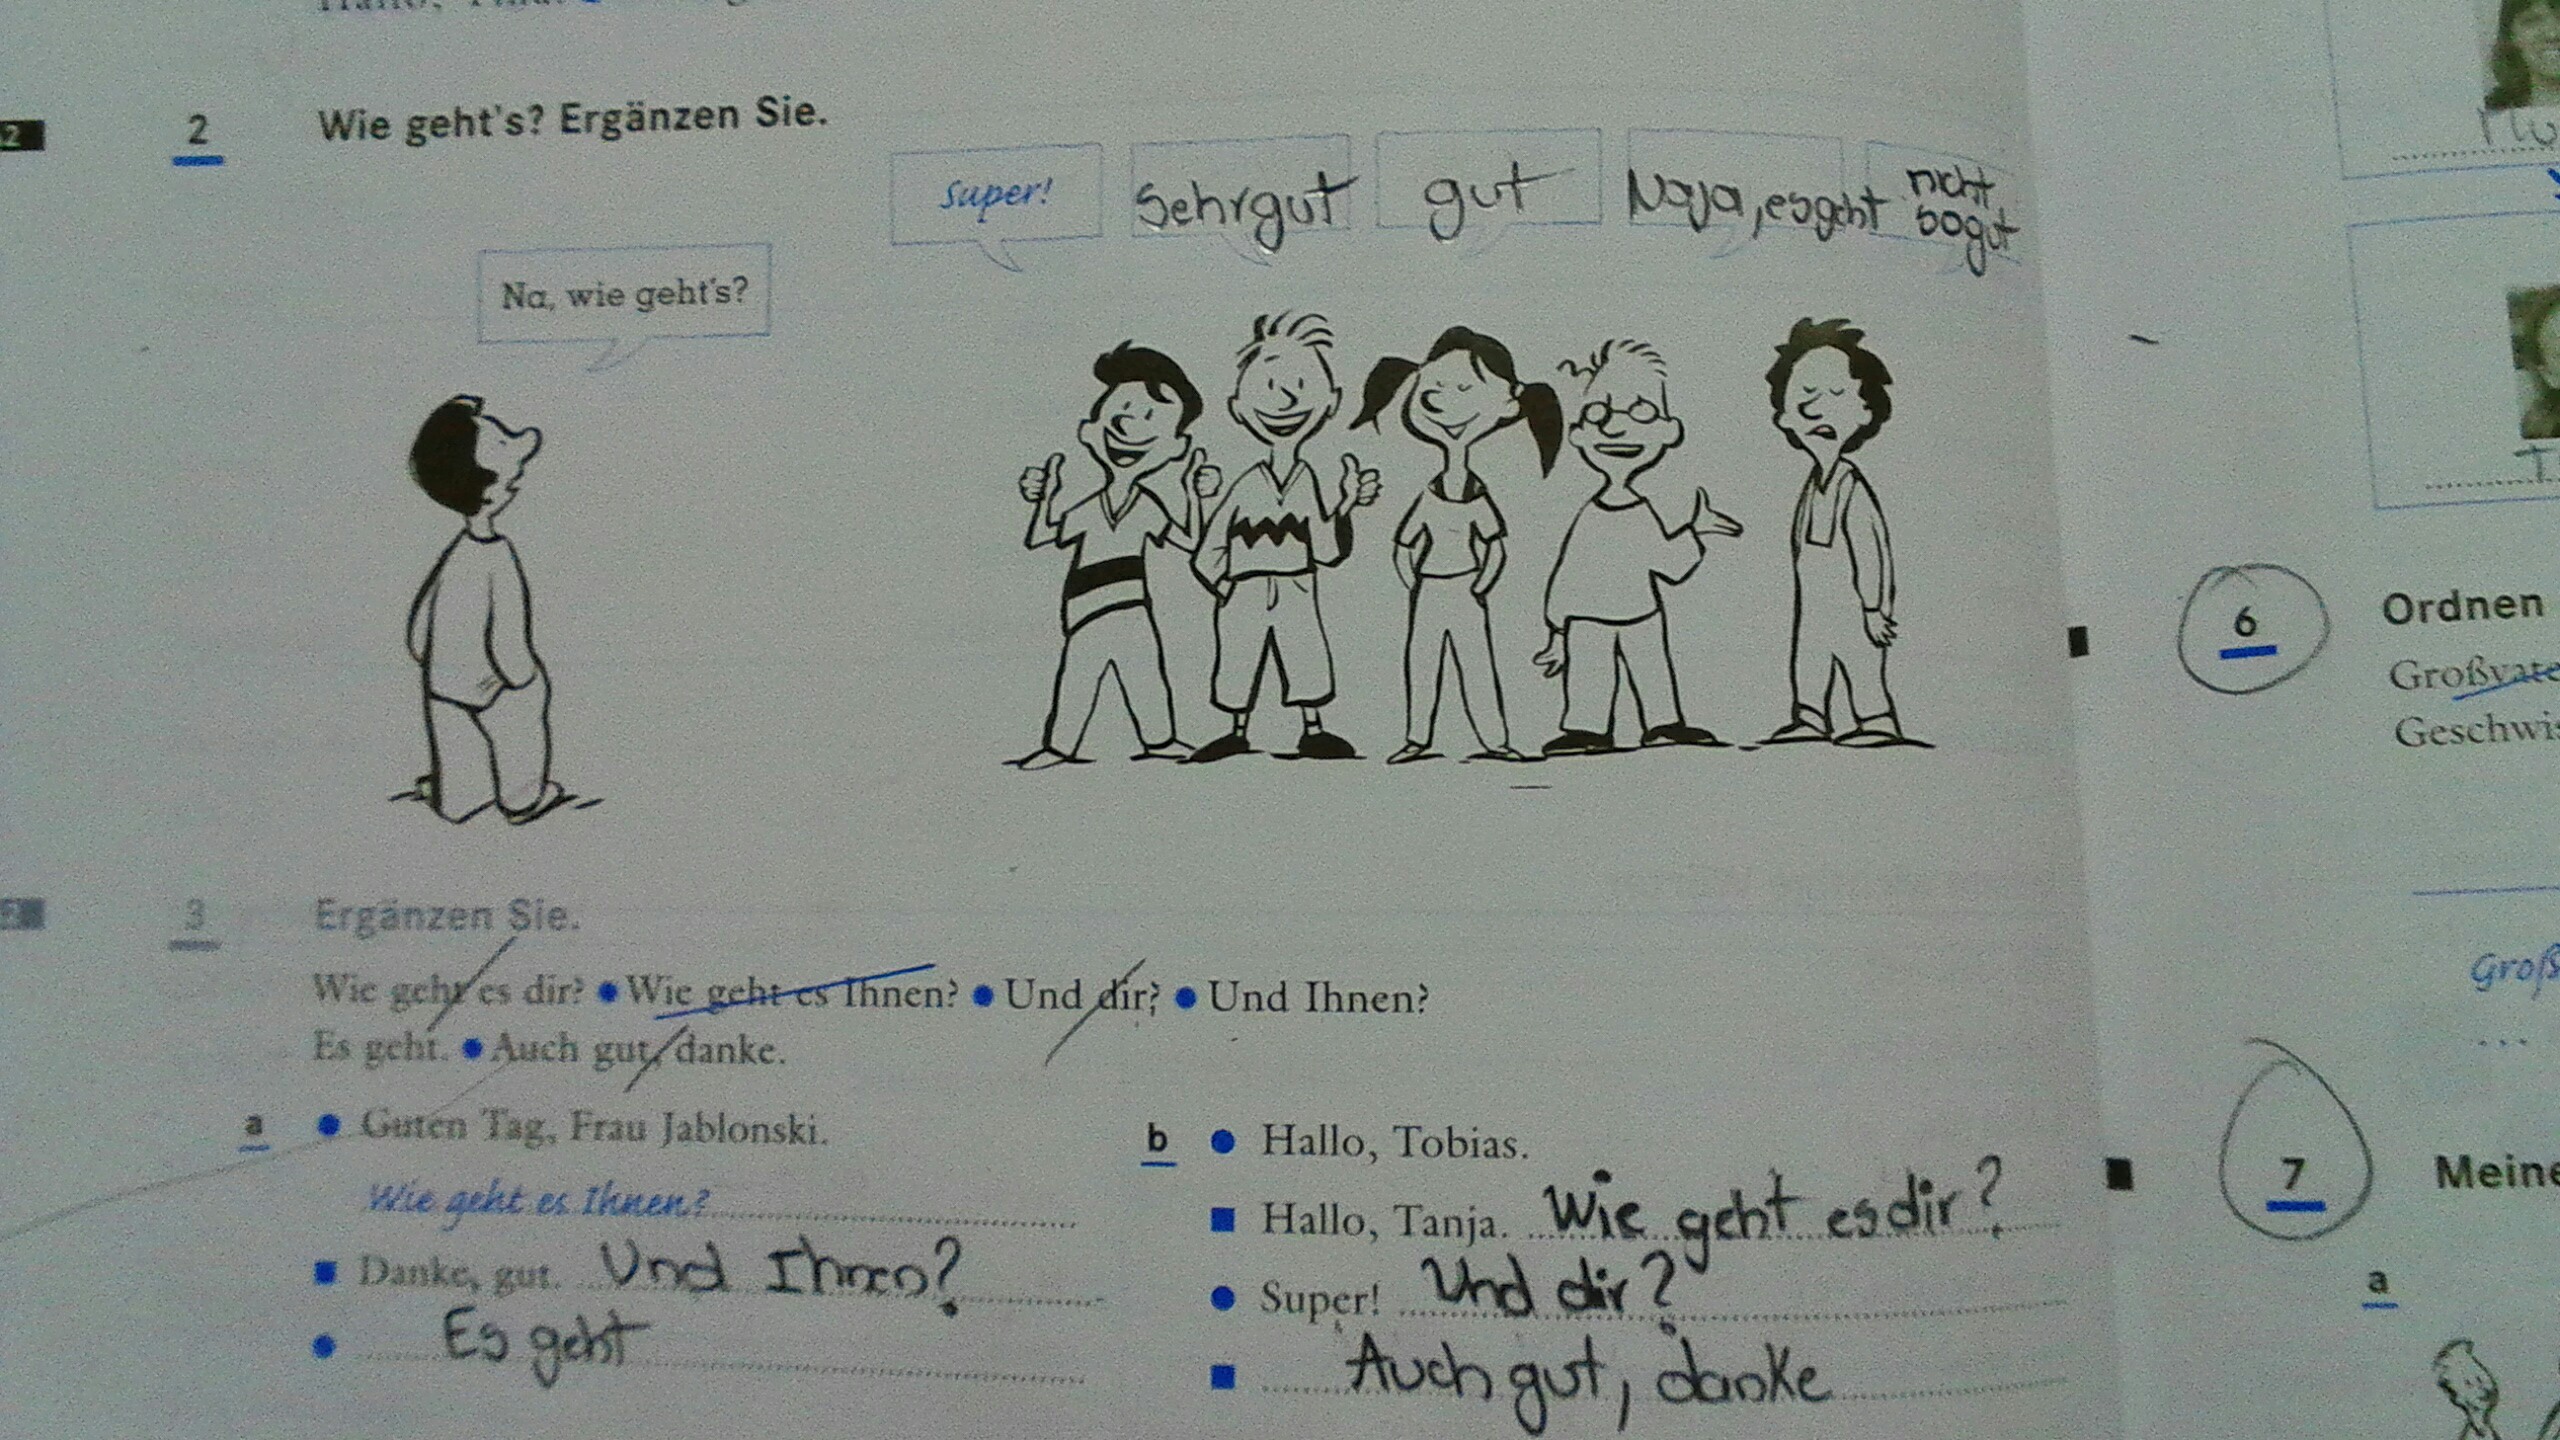 2
2 Wie geht's? Ergänzen Sie.
Super!
Sehrgut
gut
Naja, esgeht
nicht
sogut
Na, wie geht's?
3 Ergänzen Sie.
Wie geht es dir? ● Wie geht es Ihnen? ● Und dir? ● Und Ihnen?
Es geht. ● Auch gut, danke.
a ● Guten Tag, Frau Jablonski.
Wie geht es Ihnen?
■ Danke, gut. Und Ihnen?
● Es geht
b ● Hallo, Tobias.
■ Hallo, Tanja. Wie geht esdir?
● Super! Und dir?
■ Auch gut, danke
6 Ordnen
Großvate
Geschwis
Groß
...
7 Meine
a